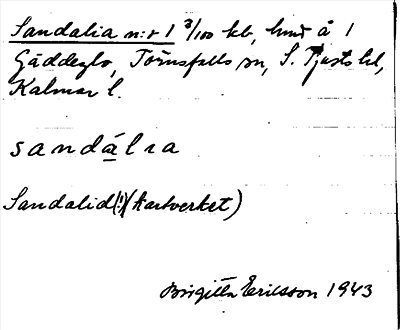 Sandalia n:r 1 3/100 kb, hmd å 1
Gäddeglo, Törnsfalls sn, S. Tjusts hd,
Kalmar l.
sandálıa
Sandalid(!)(kartverket)
Birgitta Ericsson 1943